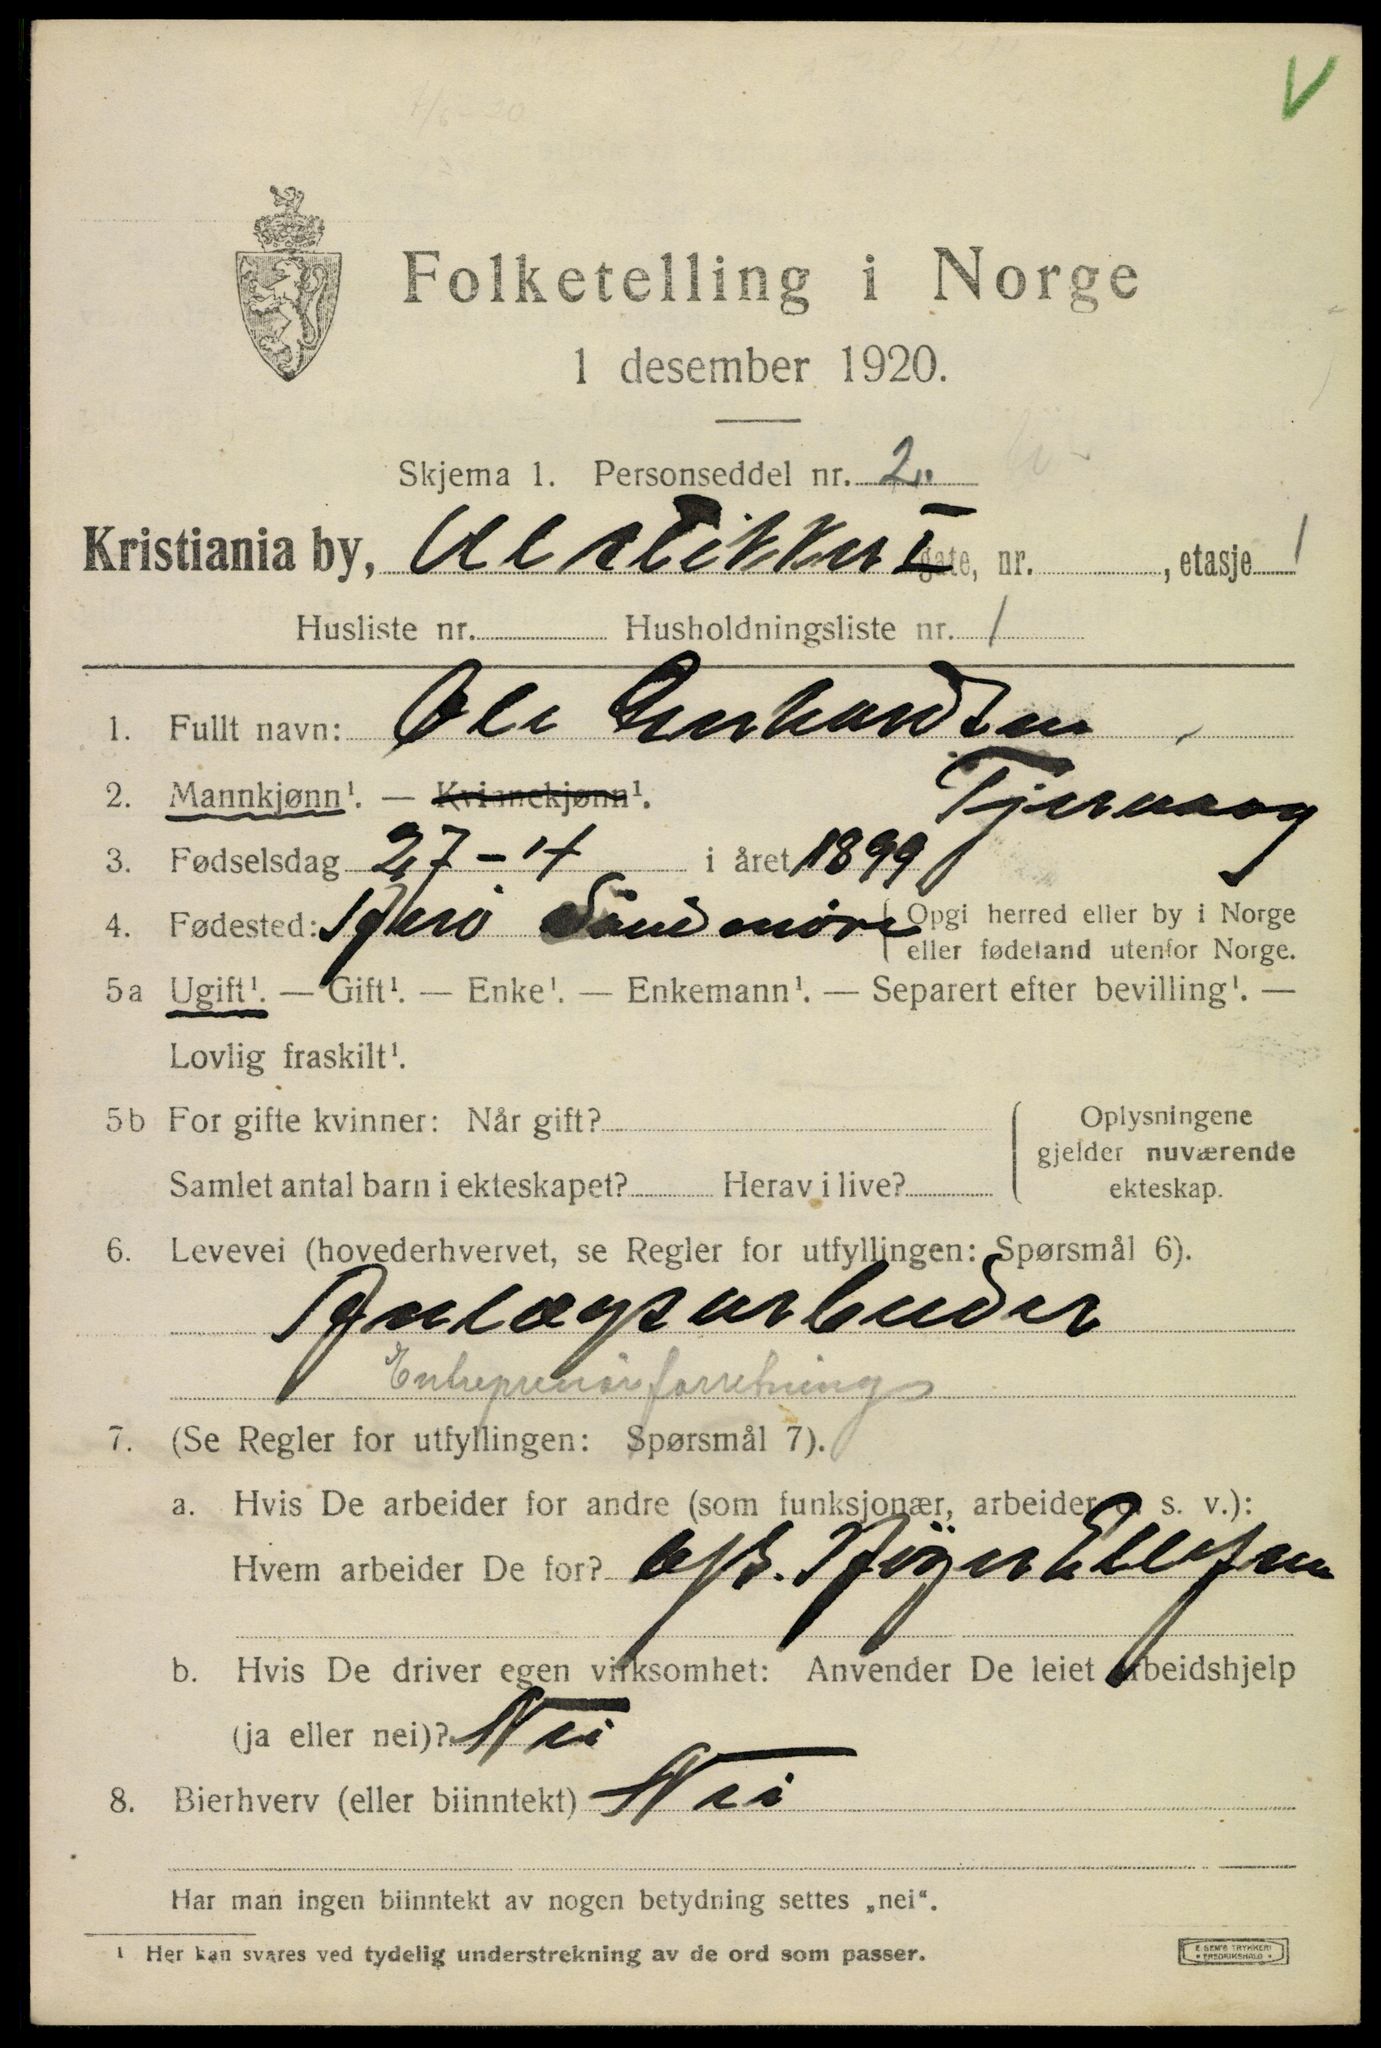 V
Folketelling i Norge
1 desember 1920.
Skjema 1. Personseddel nr. 2
Kristiania by, gate, nr. , etasje 1
Husliste nr. Husholdningsliste nr. 1
1. Fullt navn: Ole
2. Mannkjønn¹. — Kvinnekjønn¹.
3. Fødselsdag 27-4 i året 1899
4. Fødested: Søndmøre Opgi herred eller by i Norge
eller fødeland utenfor Norge.
5a Ugift¹. — Gift¹. — Enke¹. — Enkemann¹. — Separert efter bevilling¹. —
Lovlig fraskilt¹.
5b For gifte kvinner: Når gift? Oplysningene
gjelder nuværende
Samlet antal barn i ekteskapet? Herav i live? ekteskap.
6. Levevei (hovederhvervet, se Regler for utfyllingen: Spørsmål 6).
Anlægsarbeider
Entreprenørforretning
7. (Se Regler for utfyllingen: Spørsmål 7).
a. Hvis De arbeider for andre (som funksjonær, arbeider o. s. v.):
Hvem arbeider De for? A/S. Høyer Ellefsen
b. Hvis De driver egen virksomhet: Anvender De leiet arbeidshjelp
(ja eller nei)? Nei
8. Bierhverv (eller biinntekt) Nei
Har man ingen biinntekt av nogen betydning settes „nei“.
¹ Her kan svares ved tydelig understrekning av de ord som passer.
E. SEM'S TRYKKERI
FREDRIKSHALD